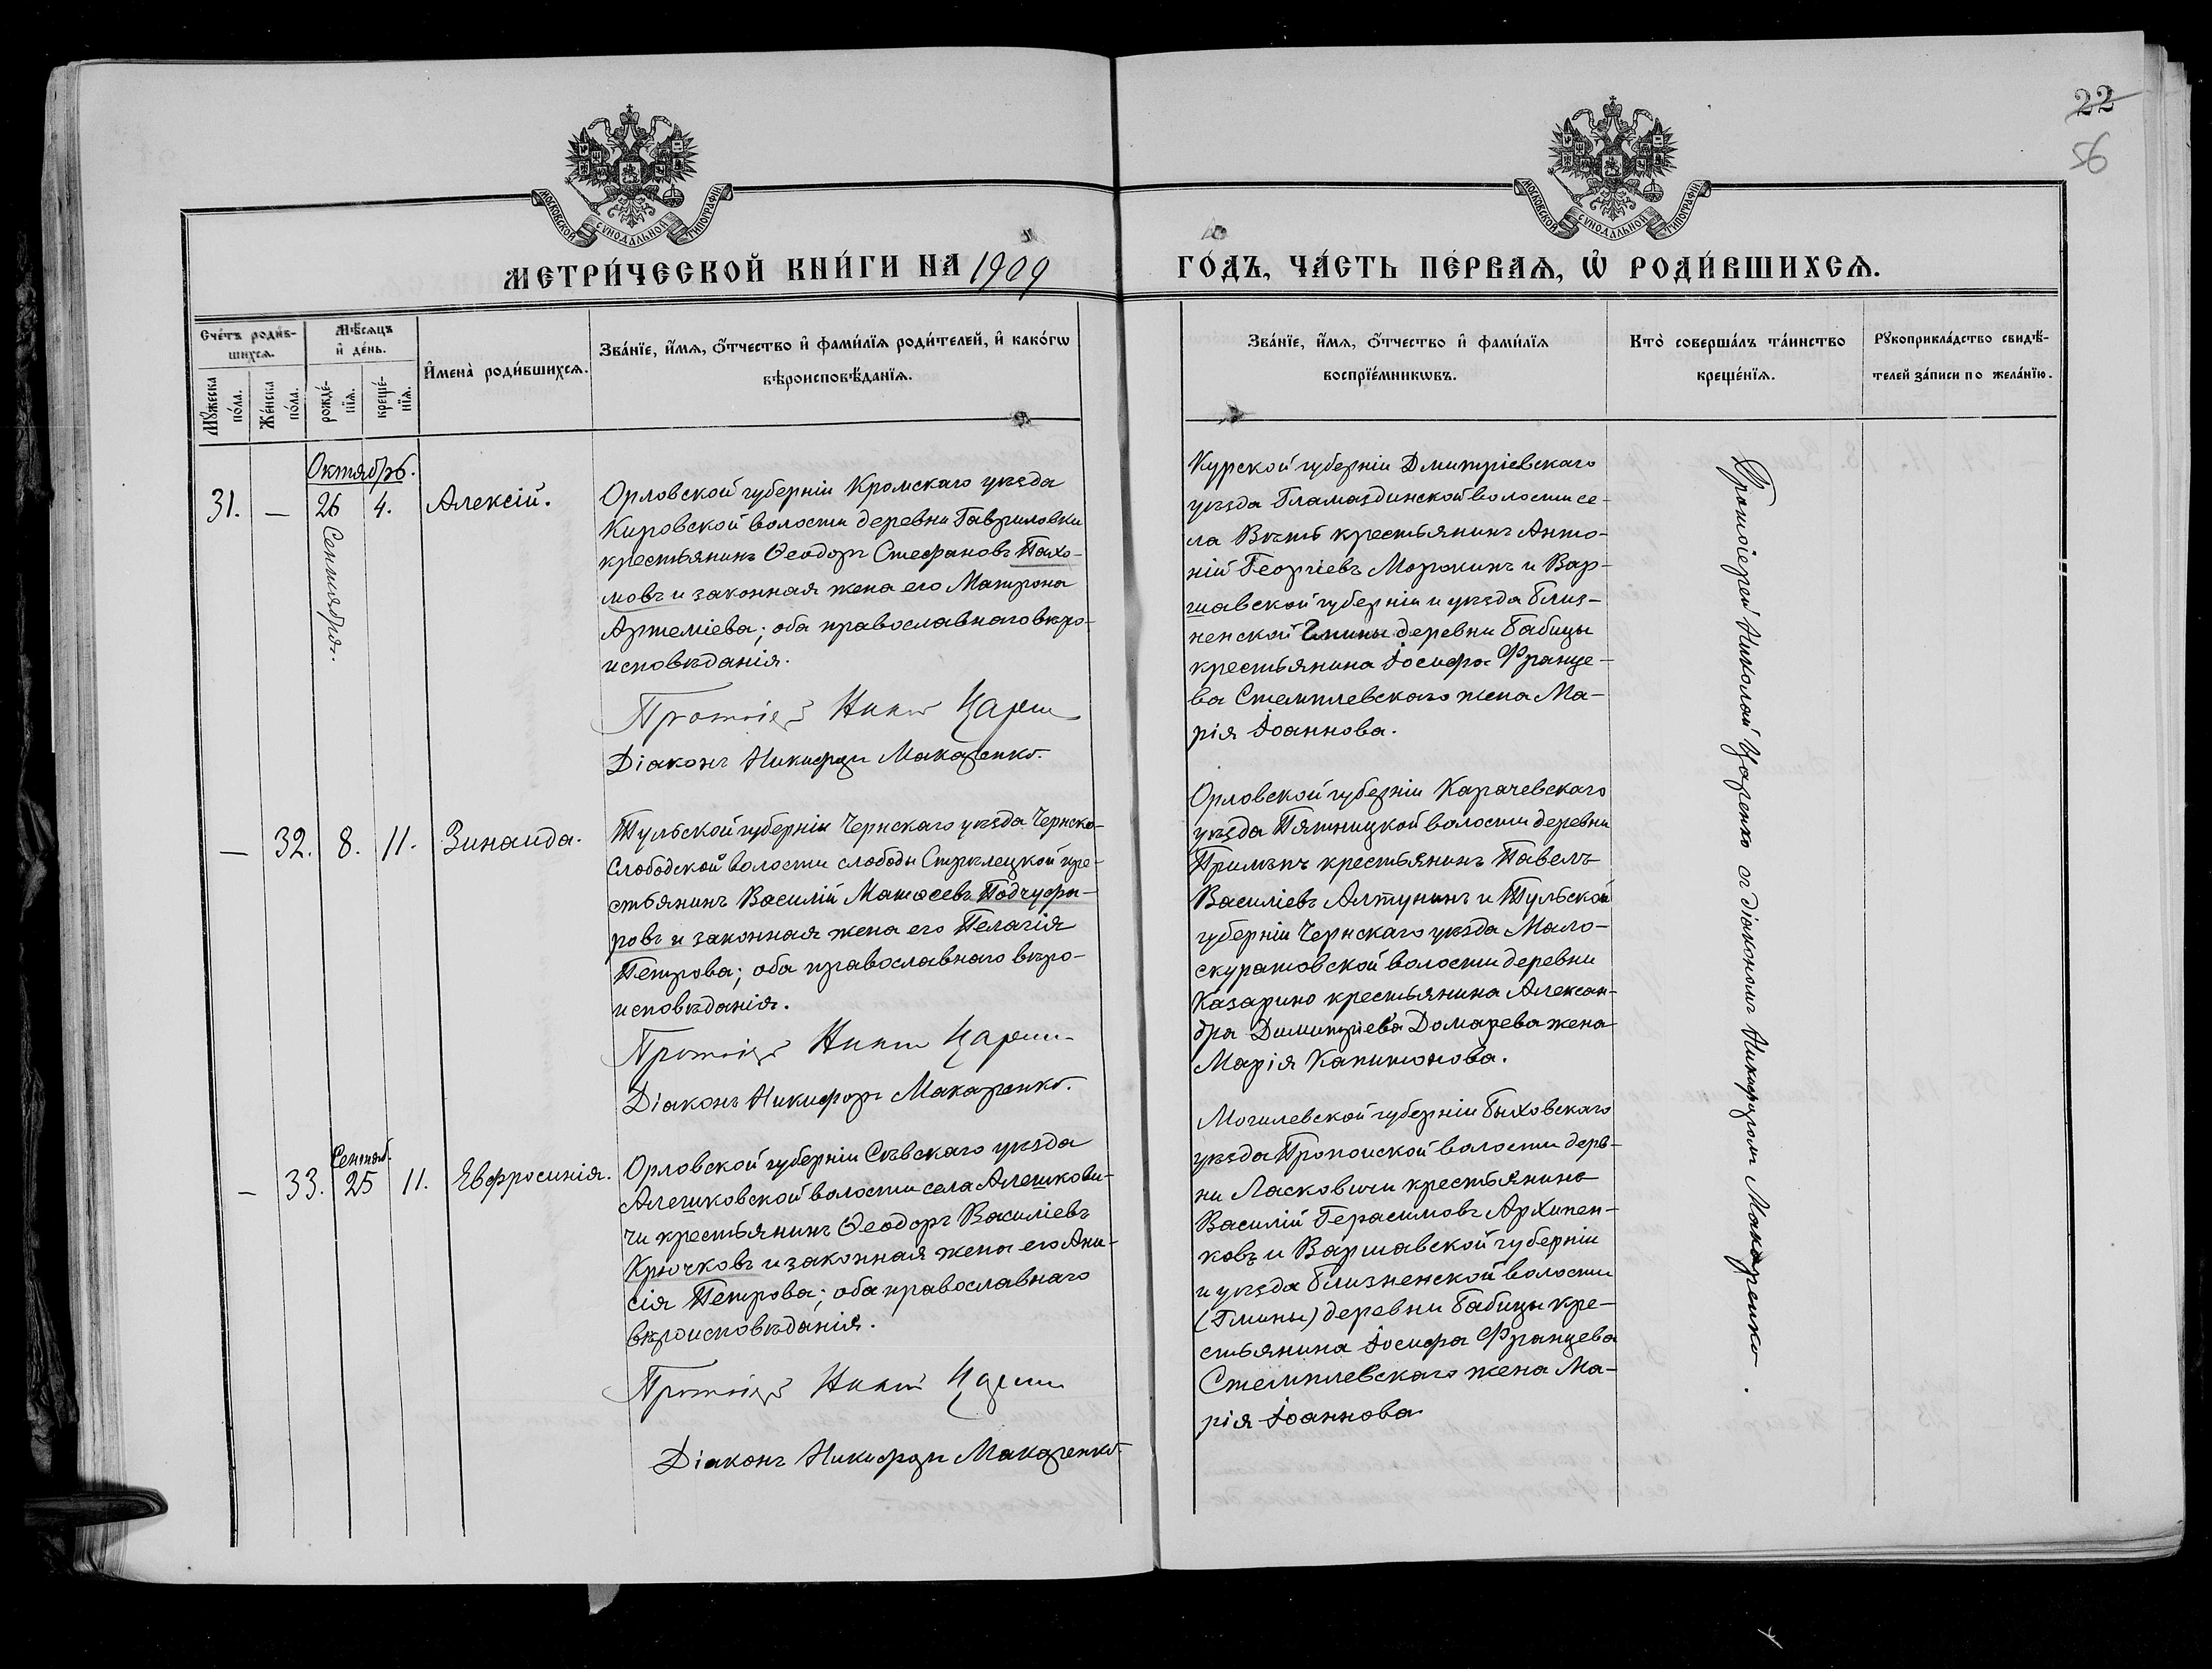 22
56
МОСКОВСКОЙ СѴНОДАЛЬНОЙ ТИПОГРАФІИ
МОСКОВСКОЙ СѴНОДАЛЬНОЙ ТИПОГРАФІИ
МЕТРИ́ЧЕСКОЙ КНИ́ГИ НА 1909
ГО́ДЪ, ЧА́СТЬ ПЕ́РВАѦ, Ѡ҆ РОДИ́ВШИХСѦ.
Сче́тъ роди́в-
шихсѧ.
Мꙋ́жеска
по́ла.
Же́нска
по́ла.
Мѣ́сѧцъ
и҆ де́нь.
рожде́-
нїѧ.
креще́-
нїѧ.
И҆мена̀ роди́вшихсѧ.
Зва́нїе, и҆́мѧ, ѻ҆́тчество и҆ фами́лїѧ роди́телей, и҆ како́гѡ
вѣроисповѣ́данїѧ.
Зва́нїе, и҆́мѧ, ѻ҆́тчество и҆ фами́лїѧ
воспрїе́мникѡвъ.
Кто̀ соверша́лъ та́инство
креще́нїѧ.
Рꙋкоприкла́дство свидѣ́-
телей за́писи по жела́нїю.
Октябрь.
31. — 26 4. Алексій.
Сентября.
Орловской губерніи Кромскаго уѣзда
Кировской волости деревни Гавриловки
крестьянинъ Ѳеодоръ Стефановъ Пахо-
мовъ и законная жена его Матрона
Артеміева; оба православнаго вѣро-
исповѣданія.
Діаконъ Никифоръ Макаренко.
Курской губерніи Дмитріевскаго
уѣзда Гламаздинской волости се-
ла Вѣть крестьянинъ Анто-
ній Георгіевъ Морокинъ и Вар-
шавской губерніи и уѣзда Близ-
ненской Гмины деревни Бабицы
крестьянина Іосифа Францe-
ва Стемплевскаго жена Ма-
рія Іоаннова.
Протоіерей Николай Царенко съ діакономъ Никифоромъ Макаренко.
— 32. 8. 11. Зинаида.
Тульской губерніи Чернскаго уѣзда Чернско-
Слободской волости слободы Стрѣлецкой кре-
стьянинъ Василій Матѳеевъ Подчуфа-
ровъ и законная жена его Пелагія
Петрова; оба православнаго вѣро-
исповѣданія.
Діаконъ Никифоръ Макаренко.
Орловской губерніи Карачевскаго
уѣзда Пятницкой волости деревни
крестьянинъ Павелъ
Василіевъ Алтунинъ и Тульской
губерніи Чернскаго уѣзда Мало-
скуратовской волости деревни
Казарино крестьянина Алексан-
дра Димитріева Домарева жена
Марія Капитонова.
Сентяб.
— 33. 25 11. Евфросинія.
Орловской губерніи Сѣвскаго уѣзда
Алешковской волости села Алешкови-
чи крестьянинъ Ѳеодоръ Василіевъ
Крючковъ и законная жена его Ани-
сія Петрова; оба православнаго
вѣроисповѣданія.
Діаконъ Никифоръ Макаренко.
Могилевской губерніи Быховскаго
уѣзда Пропоиской волости дерв-
ни Ласковичи крестьянинъ
Василій Герасимовъ Архипен-
ковъ и Варшавской губерніи
и уѣзда Близненской волости
(Гмины) деревни Бабицы кре-
стьянина Іосифа Францева
Стемплевскаго жена Ма-
рія Іоаннова